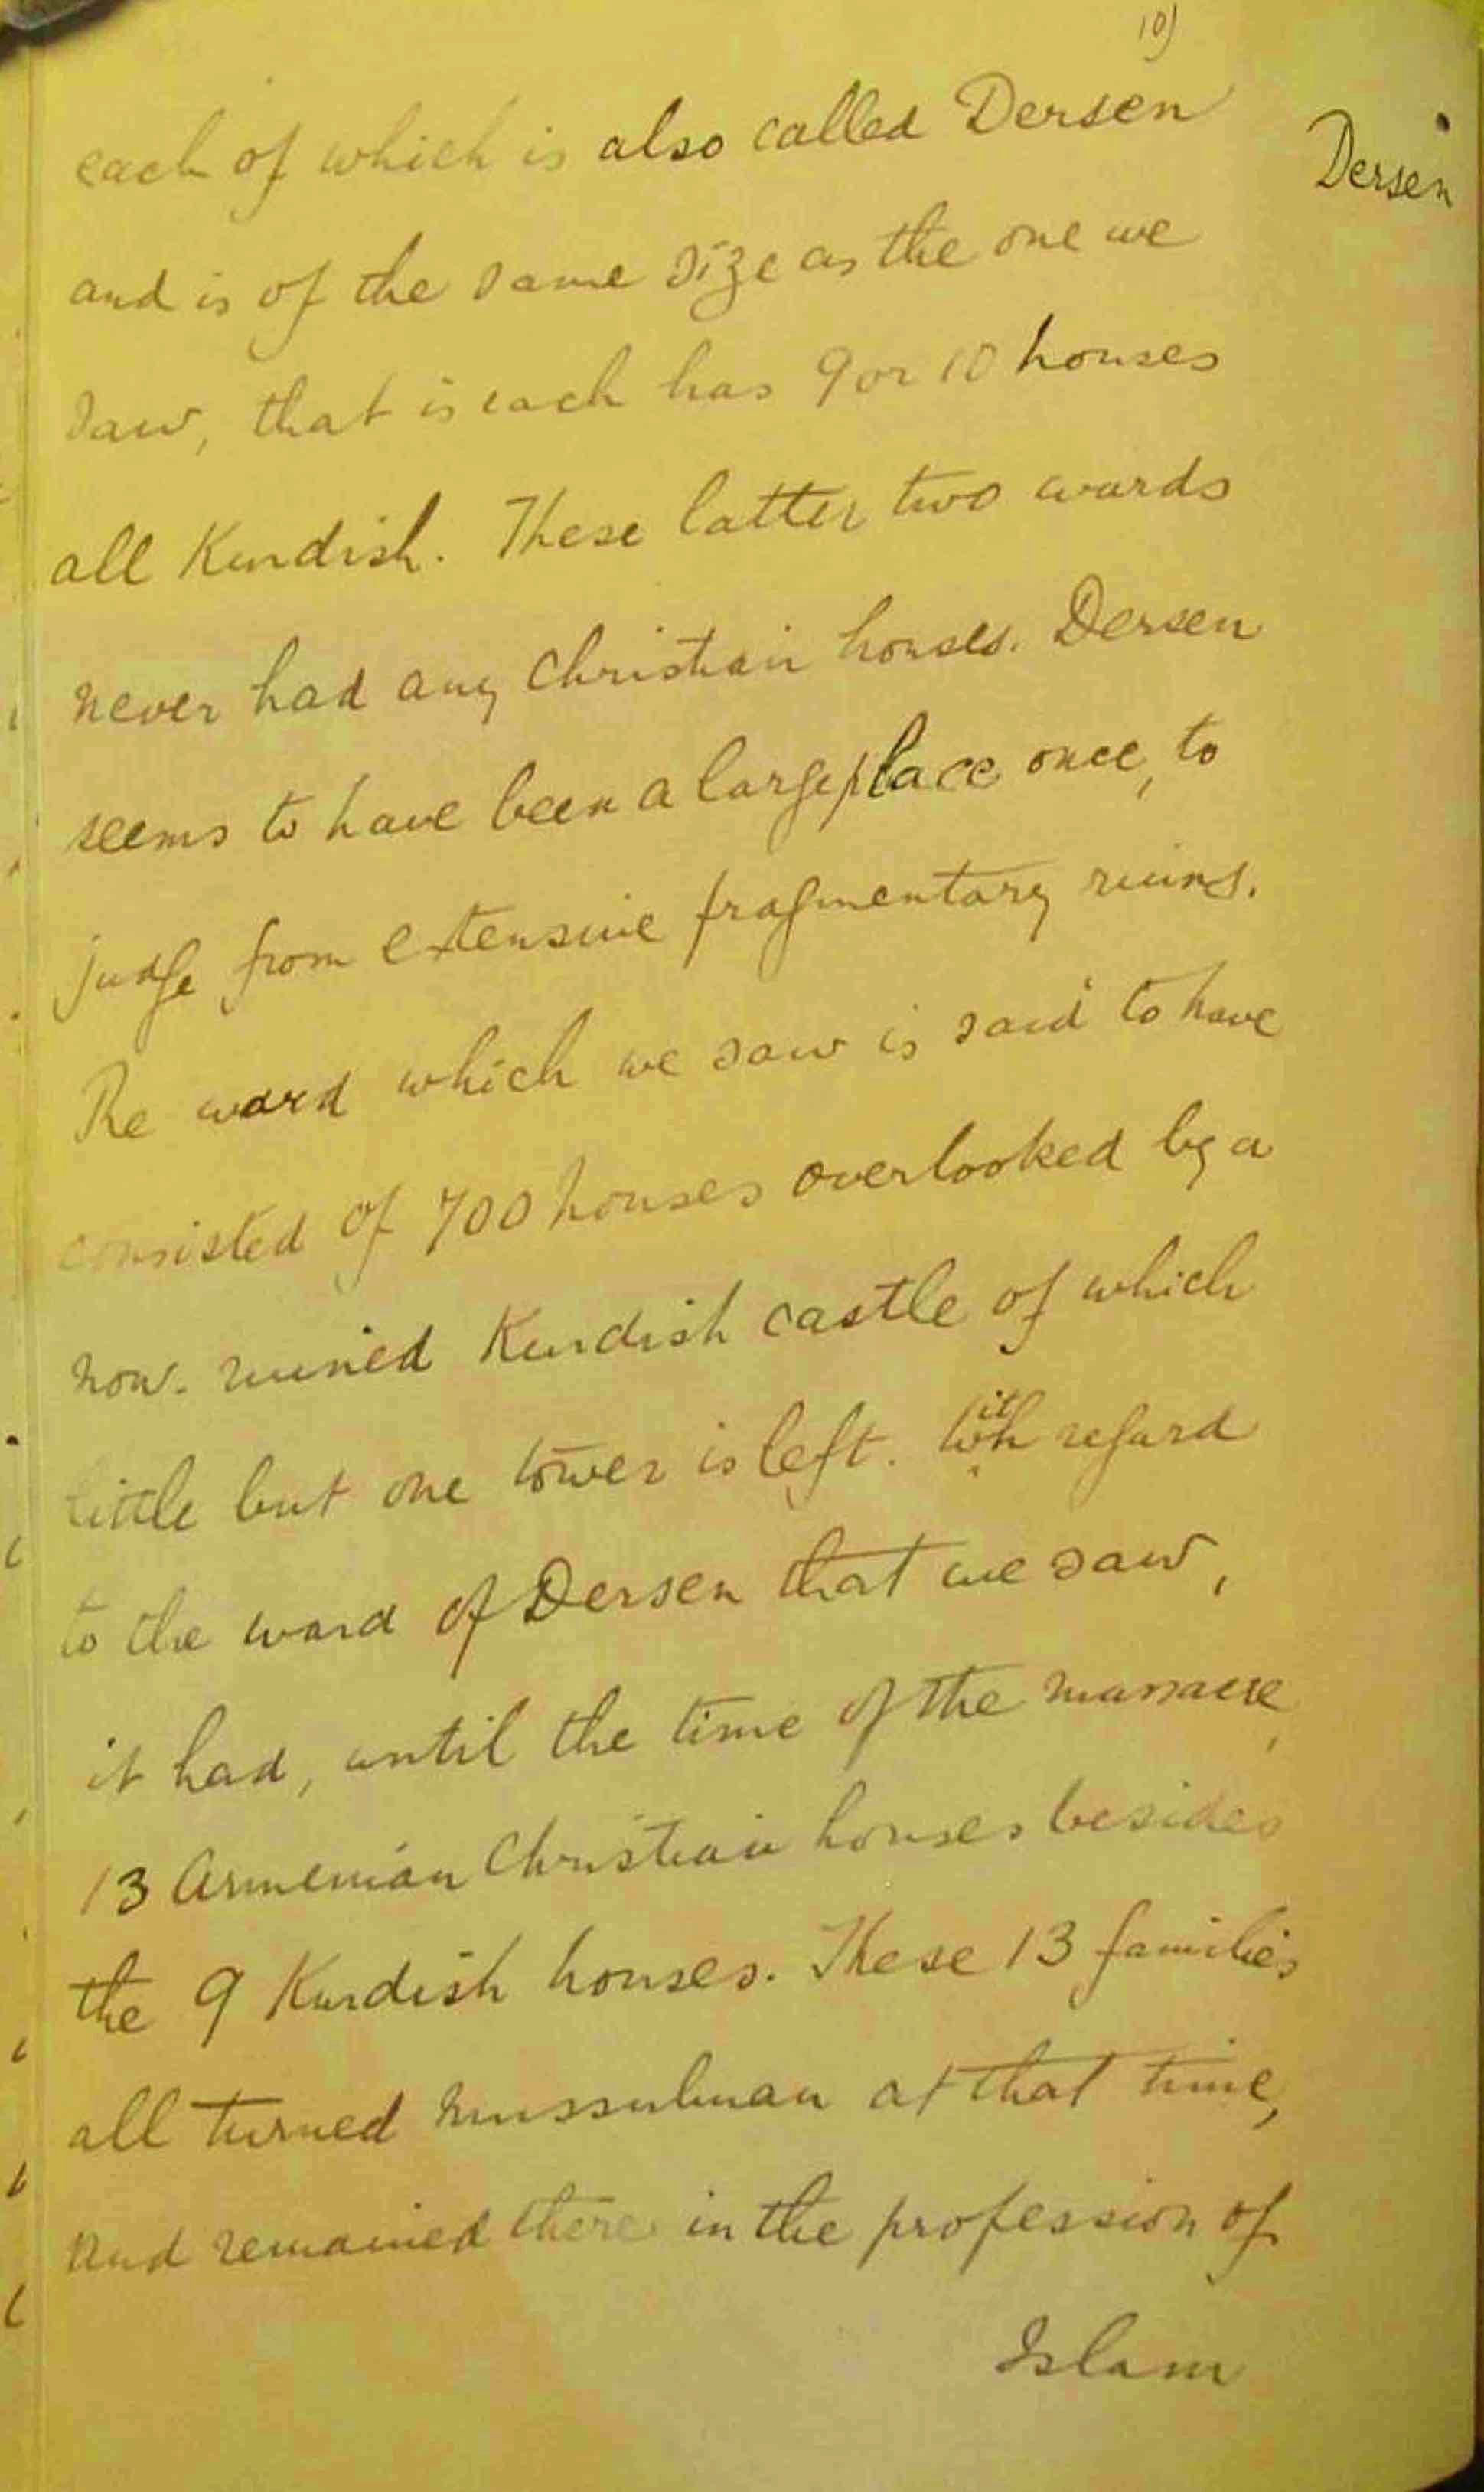 10)
Dersen
each of which is also called Dersen
and is of the same size as the one we
saw, that is each has 9 or 10 houses
all Kurdish. These latter two wards
never had any Christian houses. Dersen
seems to have been a large place once, to
judge from extensive fragmentary ruins.
The ward which we saw is said to have
consisted of 700 houses overlooked by a
now ruined Kurdish castle of which
little but one tower is left. With regard
to the ward of Dersen that we saw,
it had, until the time of the massacre,
13 Armenian Christian houses besides
the 9 Kurdish houses. These 13 families
all turned Mussulman at that time,
and remained there in the profession of
Islam